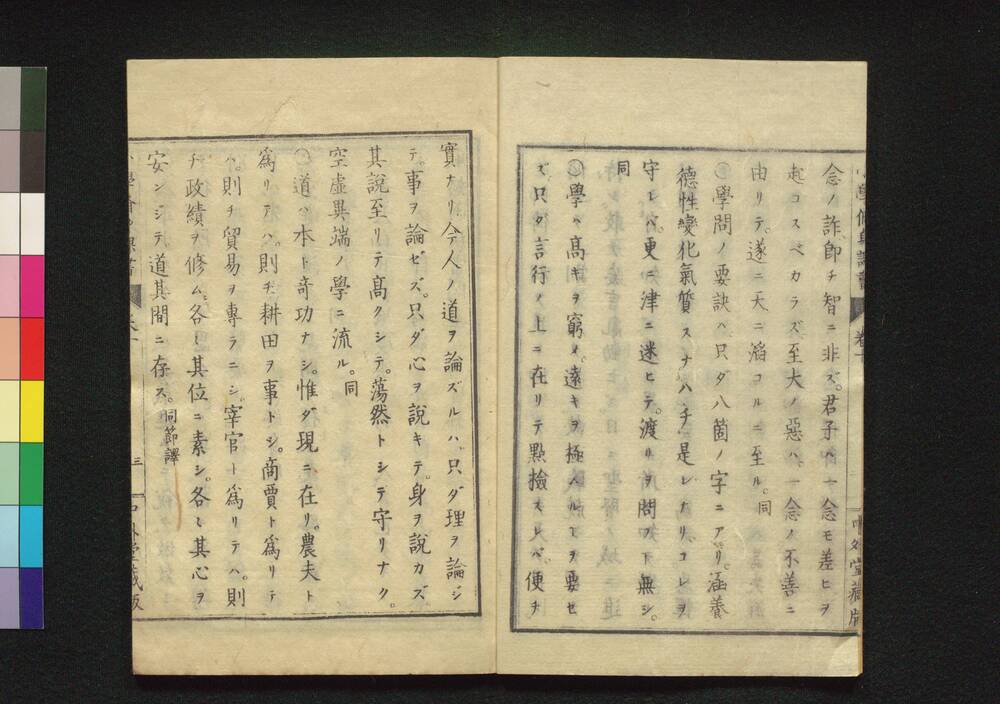 念ノ詐即チ智ニ非ズ。君子ハ一念モ差ヒヲ
起コスベカラズ至大ノ惡ハ。一念ノ不善ニ
由リテ。遂ニ天ニ滔コルニ至ル。同
學問ノ要訣ハ。只ダ八箇ノ字ニアリ。涵養
德性變化氣質スナハチ是レナリコレヲ
守レバ。更ニ津ニ迷ヒテ。渡リヲ問フト無シ。
同
學ハ高キヲ窮メ。遠キヲ極ムルヿヲ要セ
ズ。只ダ言行ノ上ニ在リテ點撿スレバ。便チ
實ナリ今人ノ道ヲ論ズルハ。只ダ理ヲ論ジ
テ。事ヲ論ゼズ。只ダ心ヲ說キテ。身ヲ說カズ
其說至リテ高クシテ。蕩然トシテ守リナク。
空虛異端ノ學ニ流ル。同
道ハ本ト奇功ナシ。惟ダ現ニ在リ。農夫ト
爲リテハ。則チ耕田ヲ事トシ。商賈ト爲リテ
ハ。則チ貿易ヲ專ラニシ。宰官ト爲リテハ。則
チ政績ヲ修ム。各〻其位ニ素シ。各〻其心ヲ
安ンジテ道其間ニ存ス。同節譯
三